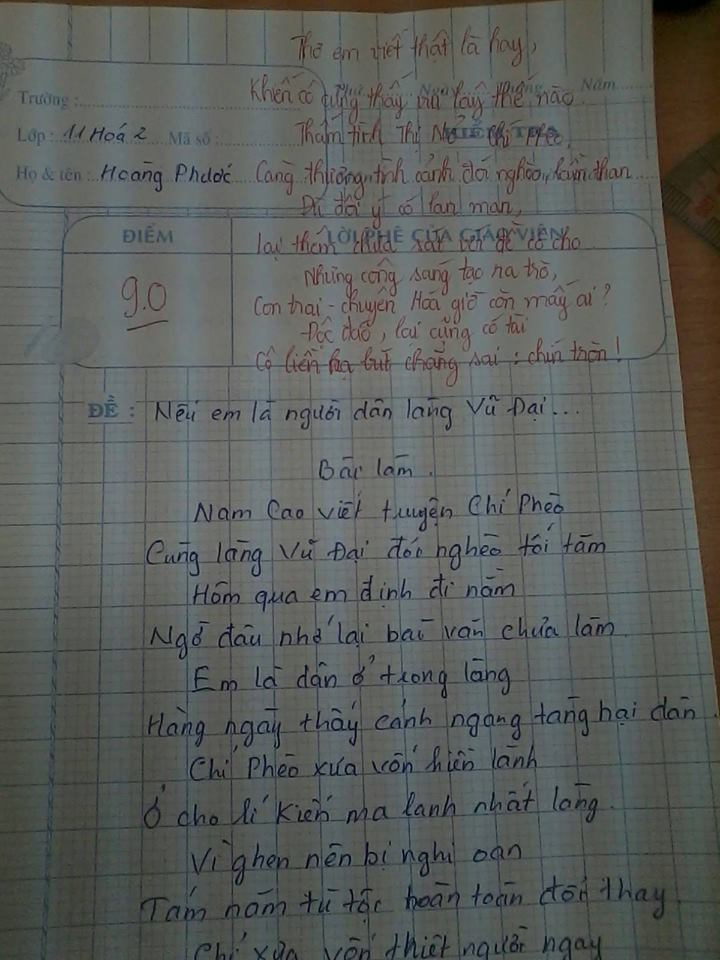 Thơ em viết thật là hay,
Khiến cô cũng thấy mê say thế nào
Thấm tình Thị Nở - Chí Phèo
Càng thương tình cảnh đói nghèo, lầm than
Dù đôi ý có lan man,
lại thêm chưa sát với đề cô cho
Nhưng công sáng tạo ra trò,
Con trai - chuyên Hoá giờ còn mấy ai?
Độc đáo, lại cũng có tài
Cô liền hạ bút chẳng sai: chín tròn!
Trường :
Năm
Lớp : 11 Hoá 2 Mã số :
Họ & tên : Hoàng Phước
ĐIỂM
LỜI PHÊ CỦA GIÁO VIÊN
9.0
ĐỀ : Nếu em là người dân làng Vũ Đại...
Bài làm.
Nam Cao viết truyện Chí Phèo
Cùng làng Vũ Đại đói nghèo tối tăm
Hôm qua em định đi nằm
Ngờ đâu nhớ lại bài văn chưa làm.
Em là dân ở trong làng
Hàng ngày thấy cảnh ngang tàng hại dân.
Chí Phèo xưa vốn hiền lành
Ở cho lí Kiến ma lanh nhất làng.
Vì ghen nên bị nghi oan
Tám năm tù tội hoàn toàn đổi thay
Chí xưa vốn thiệt người ngay